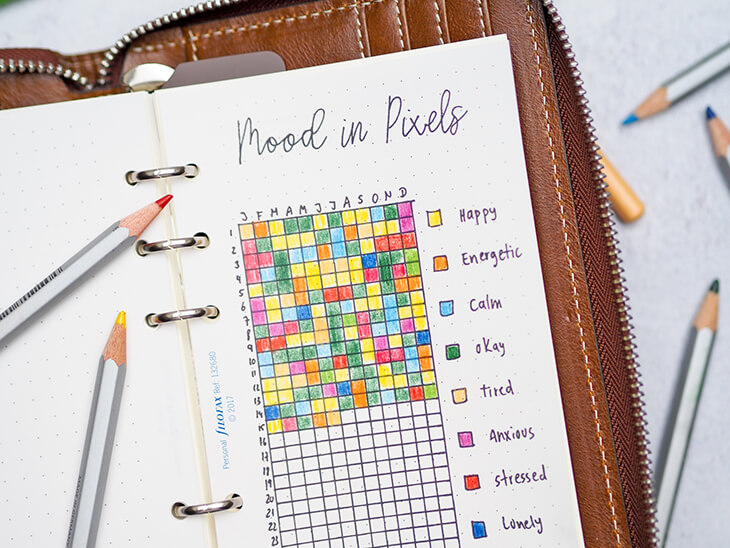 Mood in Pixels
J F M A M J J A S O N D
1
2
3
4
5
6
7
8
9
10
11
12
13
14
15
16
17
18
19
20
21
22
23
Happy
Energetic
Calm
okay
tired
Anxious
stressed
Lonely
Personal filofax Ref. 132680
© 2017